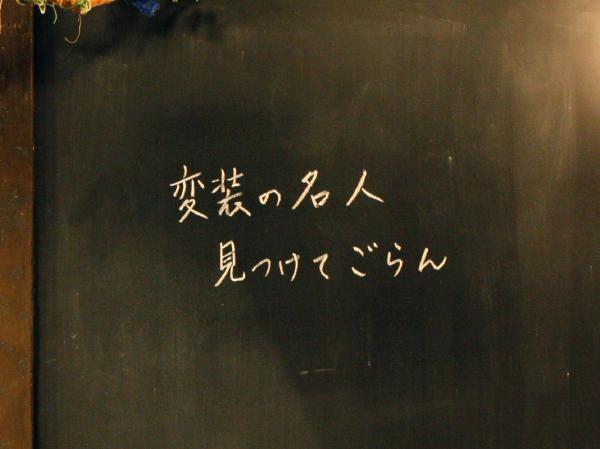 変装の名人
見つけてごらん